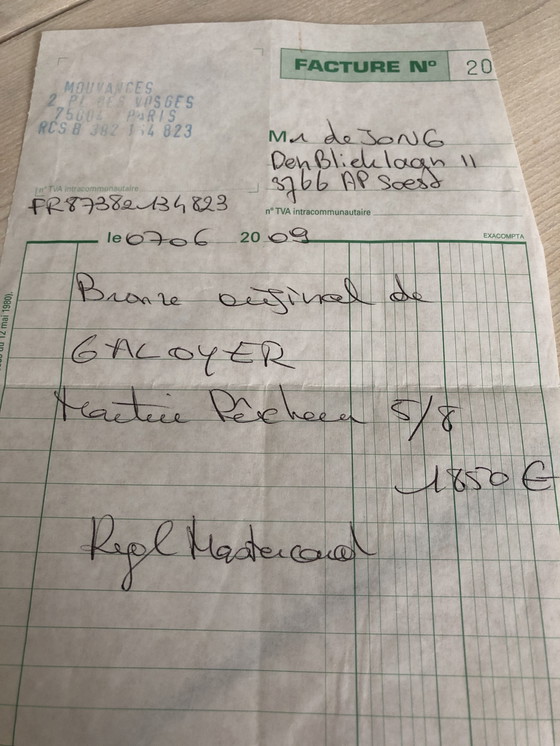 FACTURE Nº 20
MOUVANCES
2 Pl DES VOSGES
PARIS
RCS B 382 134 823
Mr de JONG
Den Blieklaan 11
3766 AP Soest
n° TVA intracommunautaire
FR87382134823
n° TVA intracommunautaire
le 0706 2009
EXACOMPTA
Bronze original de
GALOYER
Martin Pêcheur 5/8
1850 €
Regl Mastercard
du 12 mai 1980).